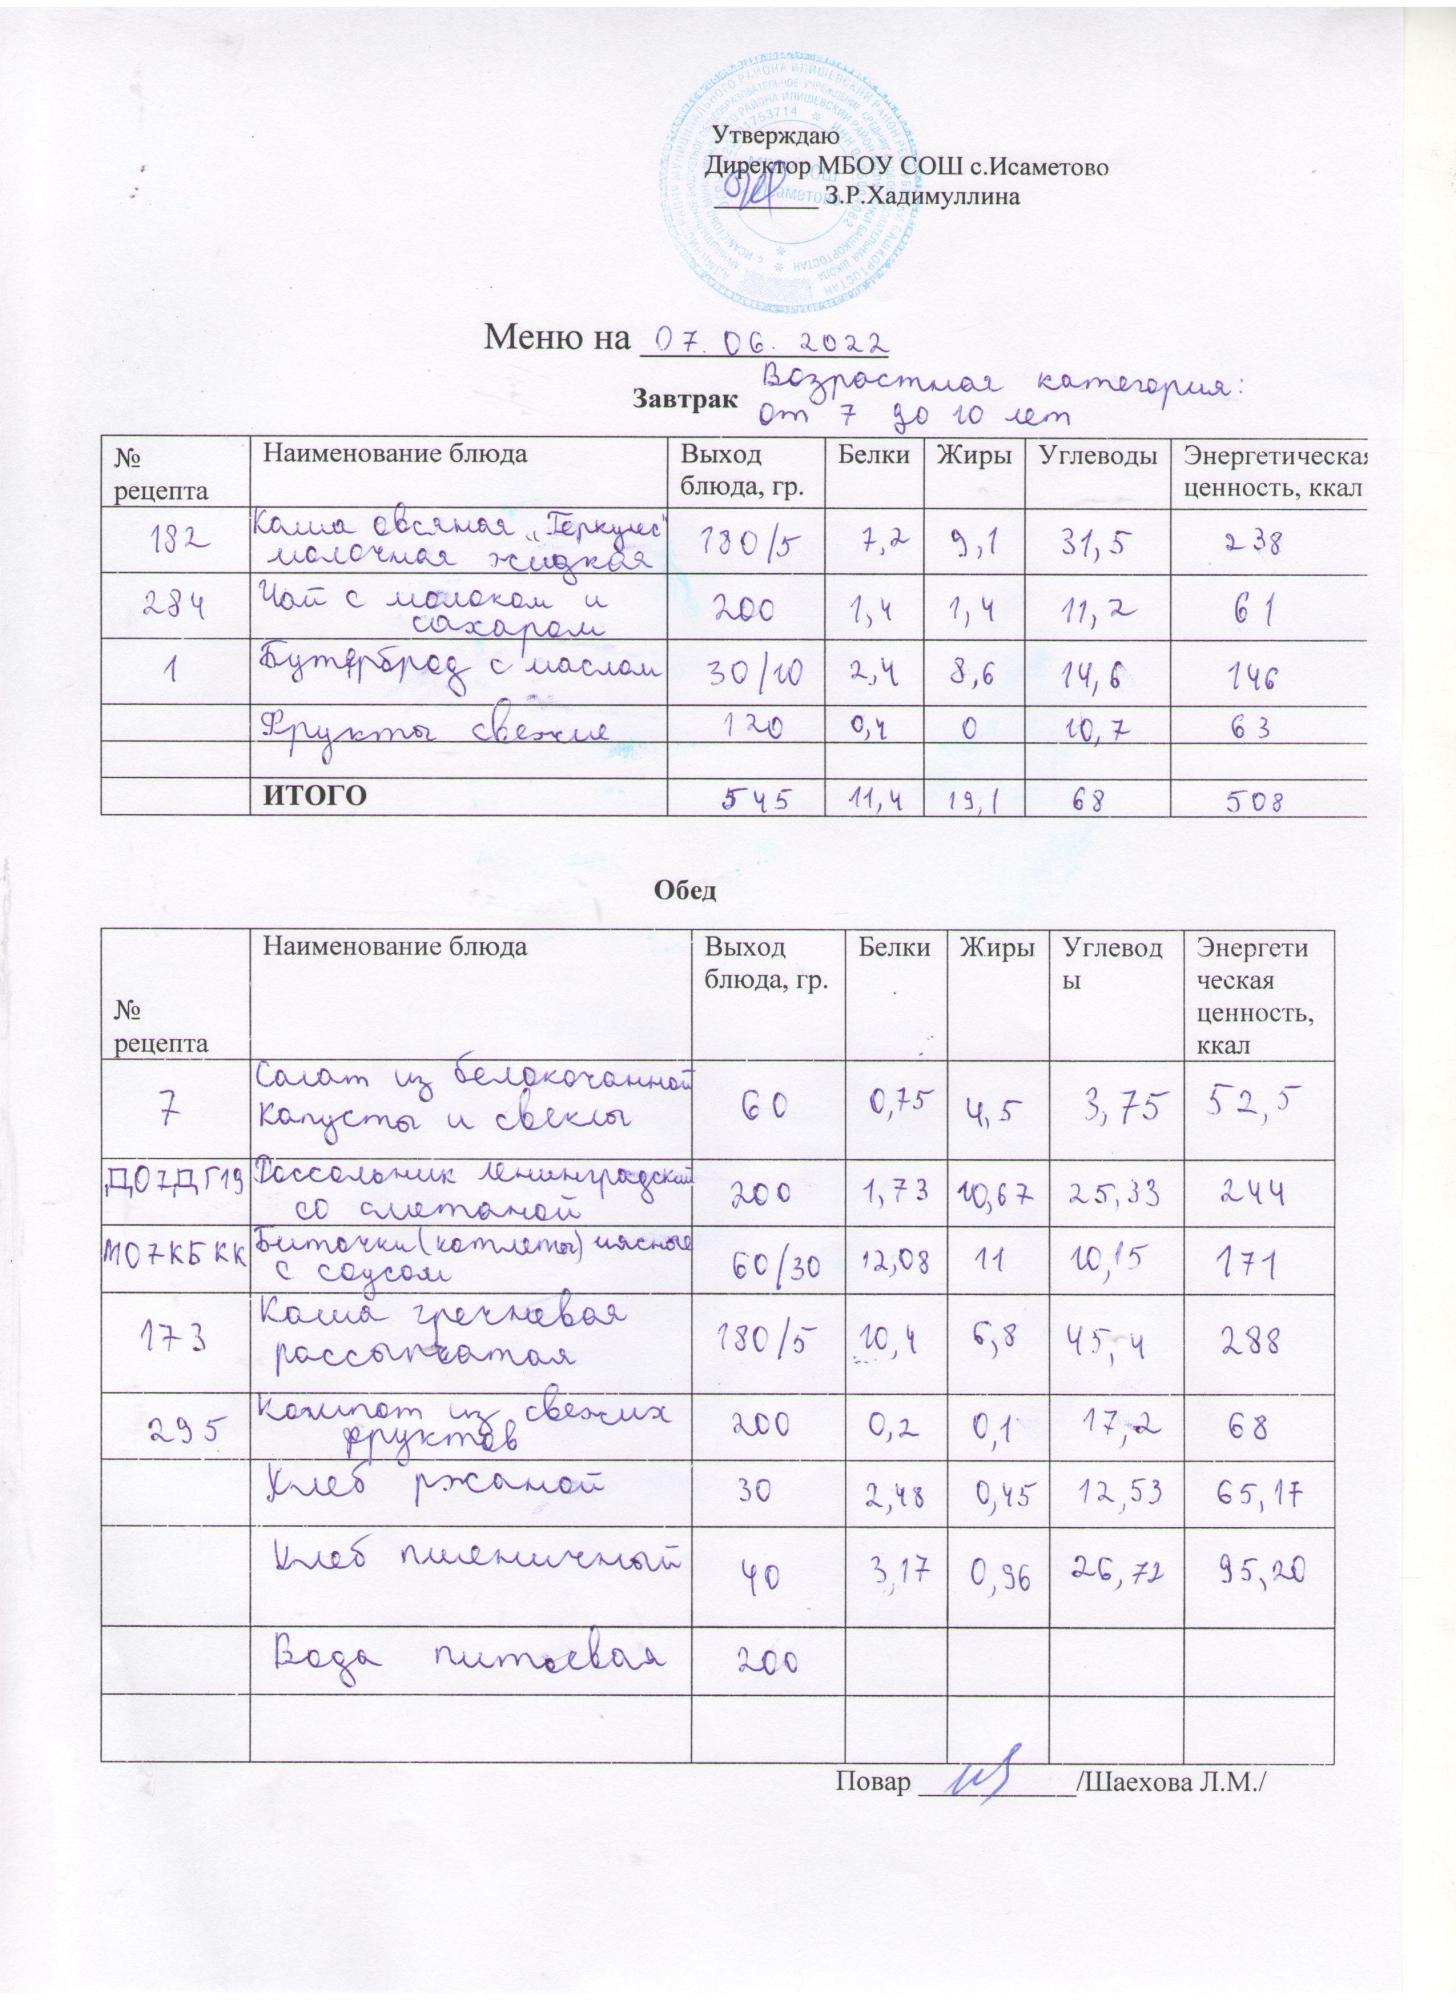 Утверждаю
Директор МБОУ СОШ с.Исаметово
З.Р.Хадимуллина
Меню на 07.06.2022
Завтрак
Возрастная категория:
от 7 до 10 лет
№ рецепта Наименование блюда Выход блюда, гр. Белки Жиры Углеводы Энергетическая ценность, ккал
182 Каша овсяная „Геркулес" молочная жидкая 180/5 7,2 9,1 31,5 238
284 Чай с молоком и сахаром 200 1,4 1,4 11,2 61
1 Бутерброд с маслом 30/10 2,4 8,6 14,6 146
Фрукты свежие 120 0,4 0 10,7 63
ИТОГО 545 11,4 19,1 68 508
Обед
№ рецепта Наименование блюда Выход блюда, гр. Белки Жиры Углеводы Энергетическая ценность, ккал
7 Салат из белокочанной капусты и свеклы 60 0,75 4,5 3,75 52,5
ДО7ДГ19 Рассольник ленинградский со сметаной 200 1,73 10,67 25,33 244
МО7КБКК Биточки (котлеты) мясные с соусом 60/30 12,08 11 10,15 171
173 Каша гречневая рассыпчатая 180/5 10,4 6,8 45,4 288
295 Компот из свежих фруктов 200 0,2 0,1 17,2 68
Хлеб ржаной 30 2,48 0,45 12,53 65,17
Хлеб пшеничный 40 3,17 0,96 26,72 95,20
Вода питьевая 200
Повар /Шаехова Л.М./